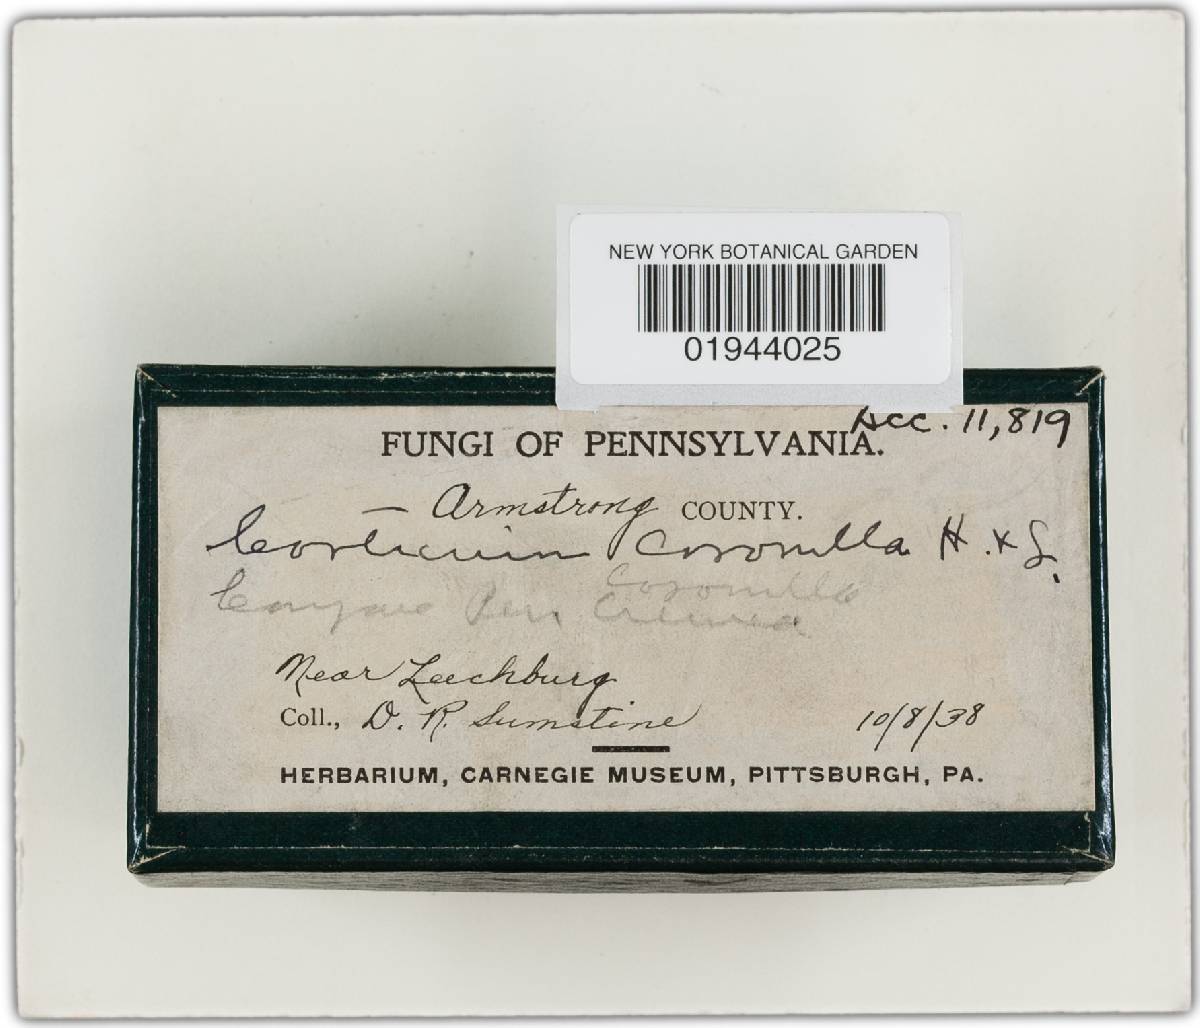 NEW YORK BOTANICAL GARDEN
01944025
Acc. 11,819
FUNGI OF PENNSYLVANIA.
— Armstrong COUNTY.
Corticium Coronilla H. & L.
Coronilla
Near Leechburg
Coll., D. R. Sumstine 10/8/38
HERBARIUM, CARNEGIE MUSEUM, PITTSBURGH, PA.